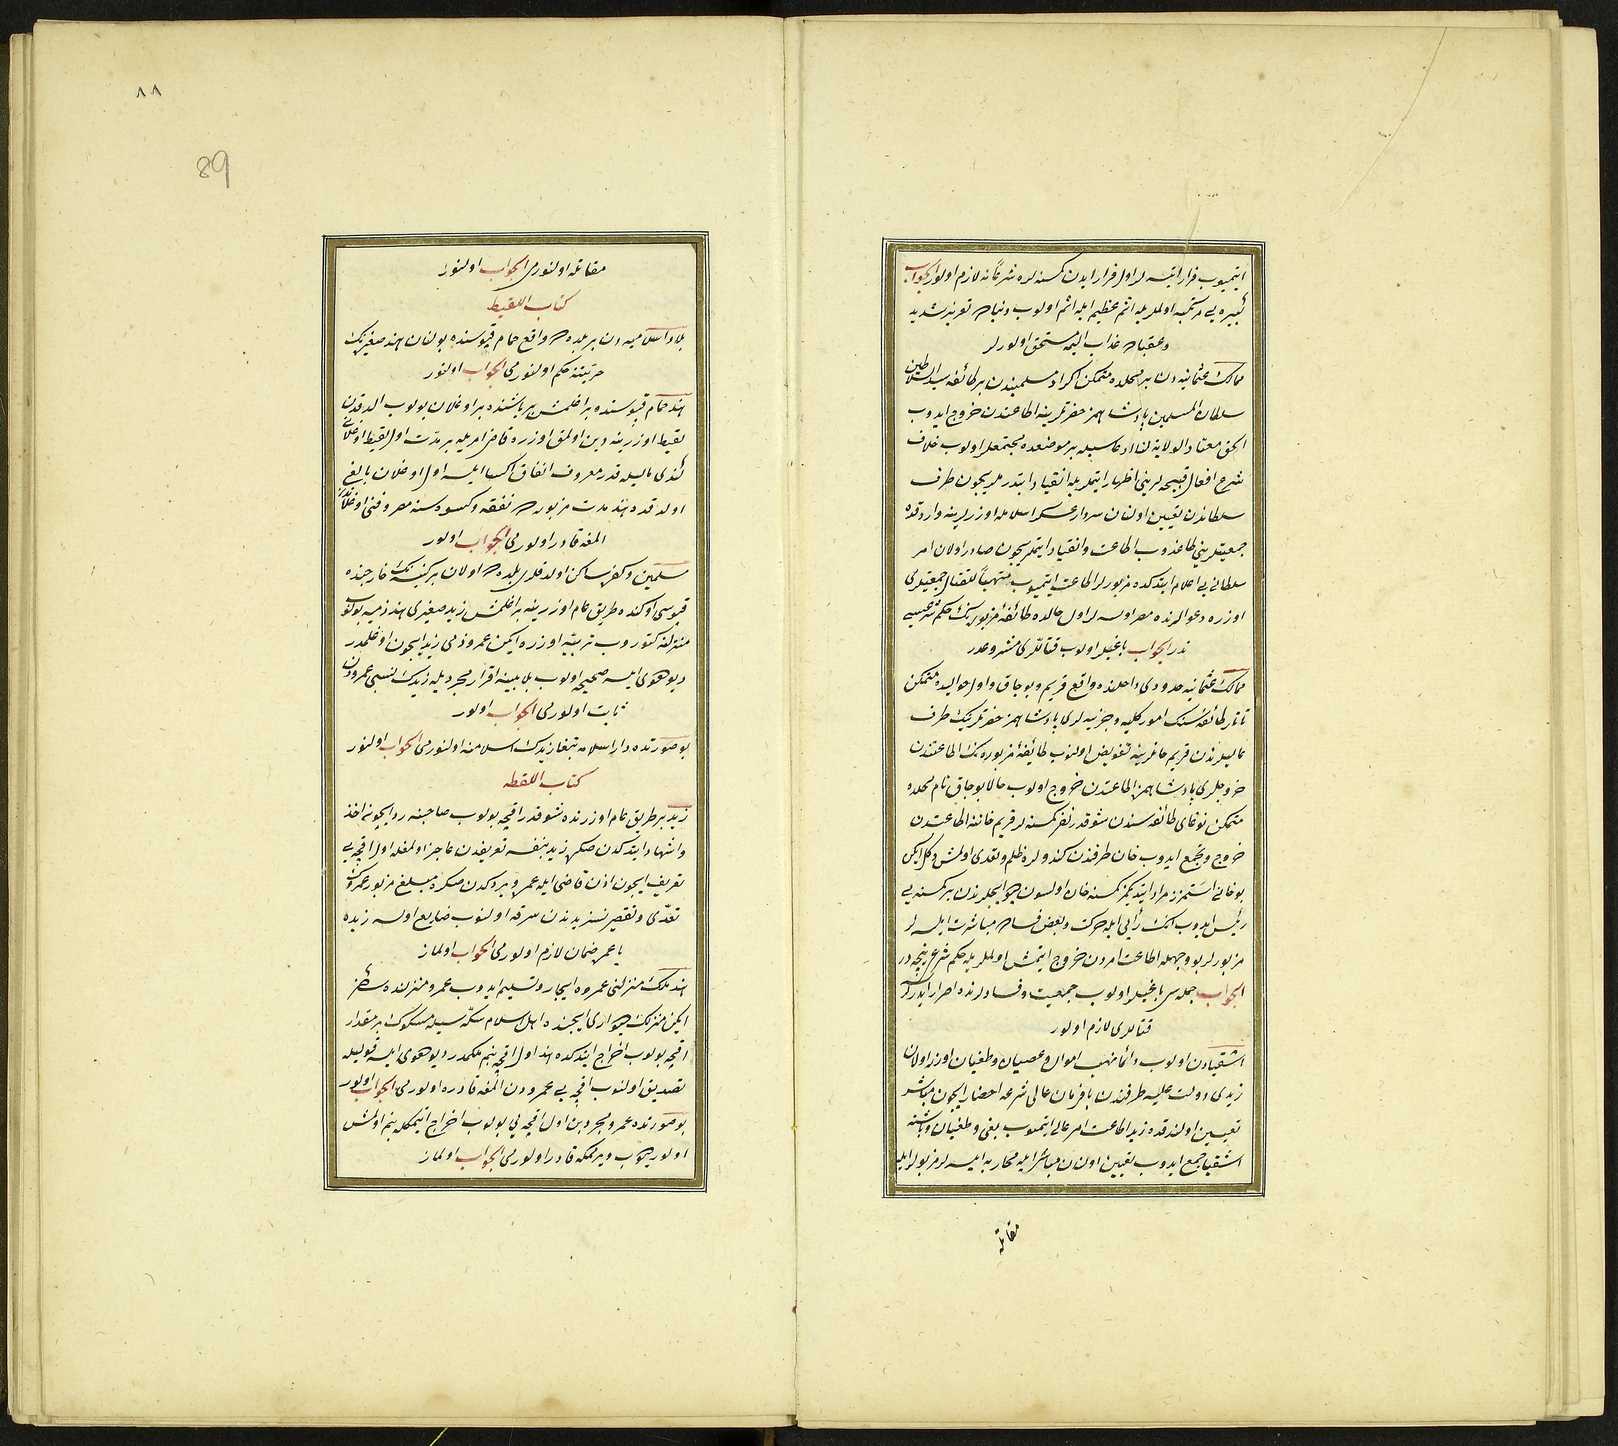 ایتمیوب فرار ایتسه لر اول فرار ایدن کسنه لره شرعا نه لازم اولور الجواب
کبیره یی مرتکبه اولملریله اثم عظیم ایله اثم اولوب دنیاده تعزیر شدید
و عقباده عذاب الیمه مستحق اولورلر
ممالک عثمانیه دن بر محلده متمکن اکراد مسلمیندن بر طائفه سید السلاطین
سلطان المسلمین پادشاهمز حضرتلرینه اطاعتدن خروج ایدوب
بر موضعده مجتمعلر اولوب خلاف
شرع افعال قبیحه لرینی اظهار ایتملریله انقیاد ایتدرملریچون طرف
سلطانیدن تعیین اولنان سردار عسکر اسلامله اوزرلرینه واردقده
جمعیتلرینی طاغدوب اطاعت و انقیاد ایتملریچون صادر اولان امر
سلطانی یی اعلام ایتدکده مزبورلر اطاعت ایتمیوب متهیأ للقتال جمعیتلری
اوزره دعوالرنده مصر اولسه لر اول حالده طائفه مزبوره نک حکم شرعیسی
ندر الجواب باغیلر اولوب قتاللری مشروعدر
ممالک عثمانیه حدودی داخلنده واقع قریم و بوجاق و اول حوالیده متمکن
تاتار طائفه سنک امور کلیه و جزئیه لری پادشاهمز حضرتلرینک طرف
عالیلرندن قریم خانلرینه تفویض اولنوب طائفه مزبوره نک اطاعتندن
خروجلری پادشاهمز اطاعتدن خروج اولوب حالا بوجاق نام محلده
متمکن نوغای طائفه سندن شو قدر نفر کمسنه لر قریم خاننه اطاعتدن
خروج و تجمع ایدوب خان طرفندن کندولره ظلم و تعدی اولمش دکل ایکن
بو خانی استمرز مراد ایتدیکمز کمسنه خان اولسون دیو ایچلرندن بر کمسنه یی
رئیس ایدوب انک رأیی ایله حرکت و بعض فساده مباشرت ایلسه لر
مزبورلر بو وجهله اطاعت امردن خروج ایتمش اولملریله حکم شرعی نیجه در
الجواب جمله سی باغیلر اولوب جمعیت و فسادلرنده اصرار ایدرلرسه
قتاللری لازم اولور
اشقیادن اولوب دائما نهب اموال و عصیان و طغیان اوزره اولان
زیدی دولت علیه طرفندن با فرمان عالی شرعه احضار ایچون مباشر
تعیین اولندقده زید اطاعت امر عالی ایتمیوب بغی و طغیان و باشنه
اشقیا جمع ایدوب تعیین اولنان مباشر ایله محاربه ایلسه لر مزبورلر ایله
مقاتله
۸۸
89
مقاتله اولنورمی الجواب اولنور
کتاب اللقیط
بلاد اسلامیه دن بر بلده ده واقع حمام قپوسنده بولنان هند صغیره نک
حریتنه حکم اولنورمی الجواب اولنور
هند حمام قپوسنده براغلمش بر یاشنده بر اوغلان بولوب الدقدن
لقیط اوزرینه دین اولمق اوزره قاضی امریله بر مدت اول لقیط اوغلانه
کندی مالیله قدر معروف انفاق و اکسا ایلسه اول اوغلان بالغ
اولدقده هند مدت مزبوره ده نفقه و کسوه سنه مصروفنی اوغلاندن
المغه قادر اولورمی الجواب اولور
مسلمین و کفره ساکن اولدقلری بلده ده اولان بر کنیسه نک خارجنده
قپوسی اوکنده طریق عام اوزرینه براغلمش زید صغیری هند ذمیه بولوب
منزلنه کتوروب تربیه اوزره ایکن عمرو ذمی زید ایچون اوغلمدر
دیو دعوی ایلسه صحیح اولوب بلا بینه اقرار مجردیله زیدک نسبی عمرودن
ثابت اولورمی الجواب اولور
بو صورتده دار اسلامه تبعا زیدک اسلامنه اولنورمی الجواب اولنور
کتاب اللقطه
زید بر طریق عام اوزرنده شو قدر اقچه بولوب صاحبنه رد ایچون اخذ
و اشهاد ایتدکدن صکره زید بنفسه تعریفدن عاجز اولمغله اول اقچه یی
تعریف ایچون اذن قاضی ایله عمرو ویردکدن صکره مبلغ مزبور عمروک
تعدی و تقصیرسز یدندن سرقه اولنوب ضایع اولسه زیده
یا عمره ضمان لازم اولورمی الجواب اولماز
هند ملک منزلنی عمروه ایجار و تسلیم ایدوب عمرو منزلده ساکن
ایکن منزلک جواری ایچنده اهل اسلام سکه سیله مسکوک بر مقدار
اقچه بولوب اخراج ایتدکده هند اول اقچه بنم ملکمدر دیو دعوی ایلسه قولیله
تصدیق اولنوب اقچه یی عمرودن المغه قادره اولورمی الجواب اولور
بو صورتده عمرو مجرد بن اول اقچه یی بولوب اخراج ایتمکله بنم اولمش
اولور دیوب ویرمامکه قادر اولورمی الجواب اولماز